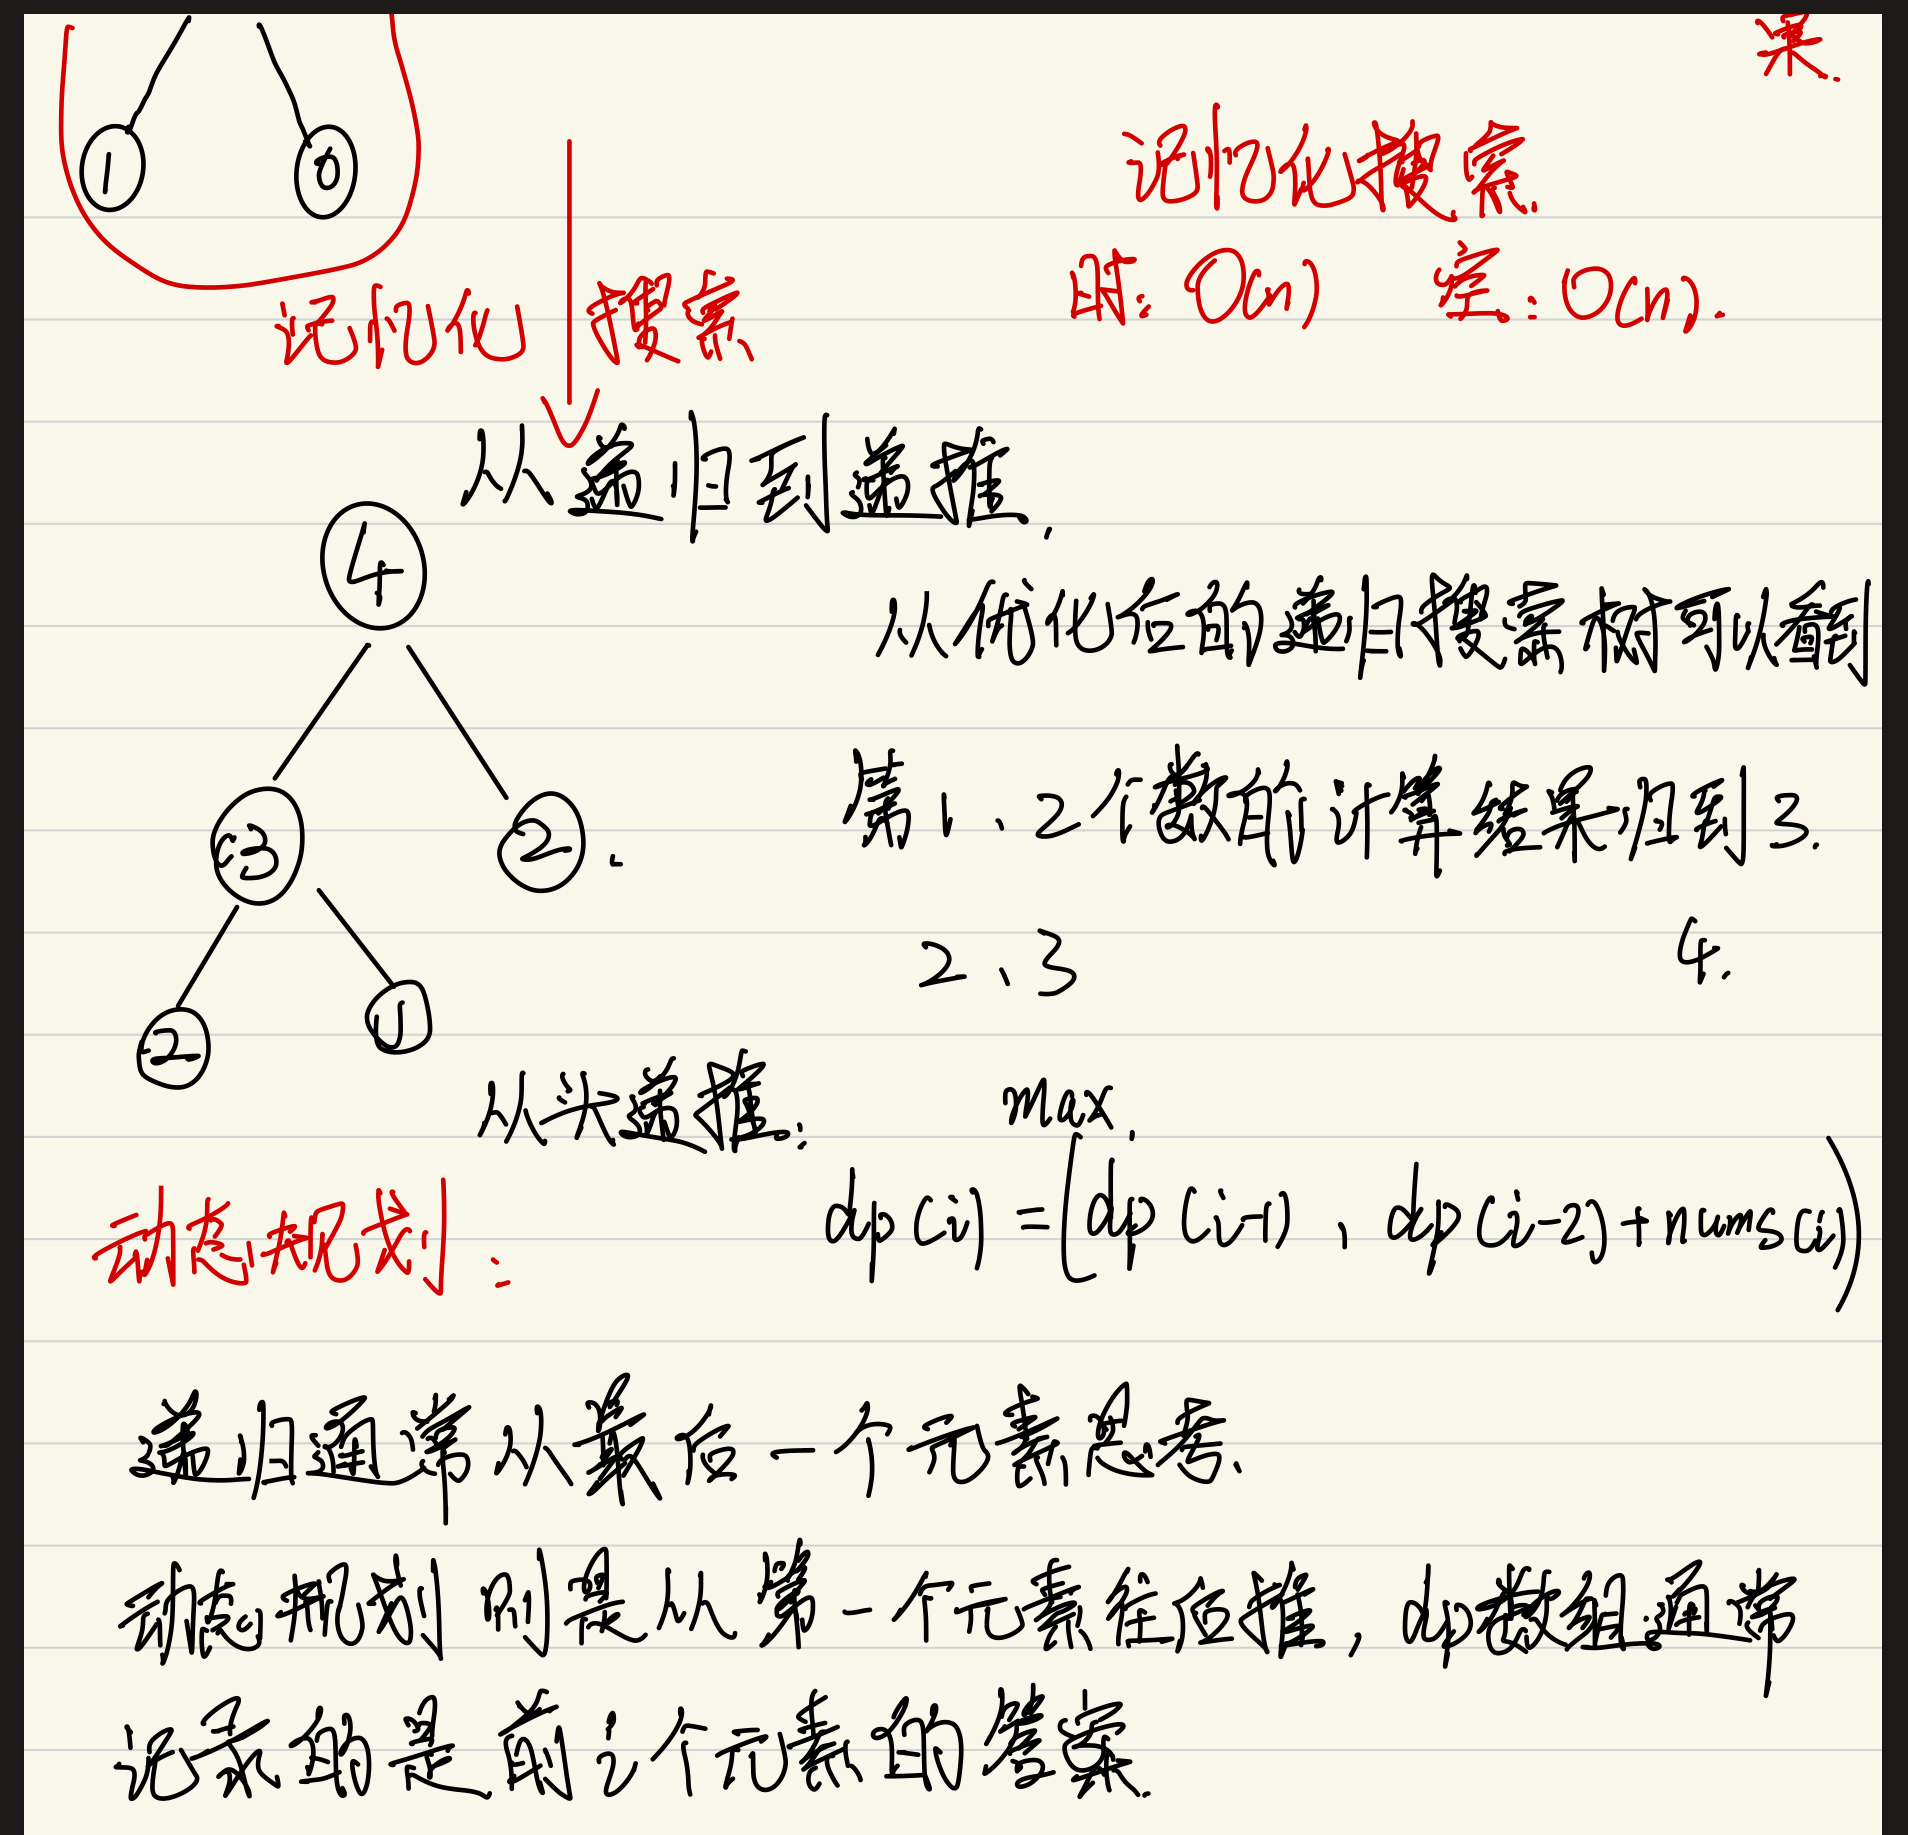 果.
1 0
记忆化搜索.
时: O(n) 空: O(n).
记忆化 搜索
从递归到递推.
4
从优化后的递归搜索树可以看到
3 2.
第1、2个数的计算结果归到3.
2、3 4.
2 1
从头递推:
max.
dp(i) = (dp(i-1), dp(i-2)+nums(i))
动态规划:
递归通常从最后一个元素思考.
动态规划则是从第一个元素往后推, dp数组通常
记录的是前i个元素的答案.